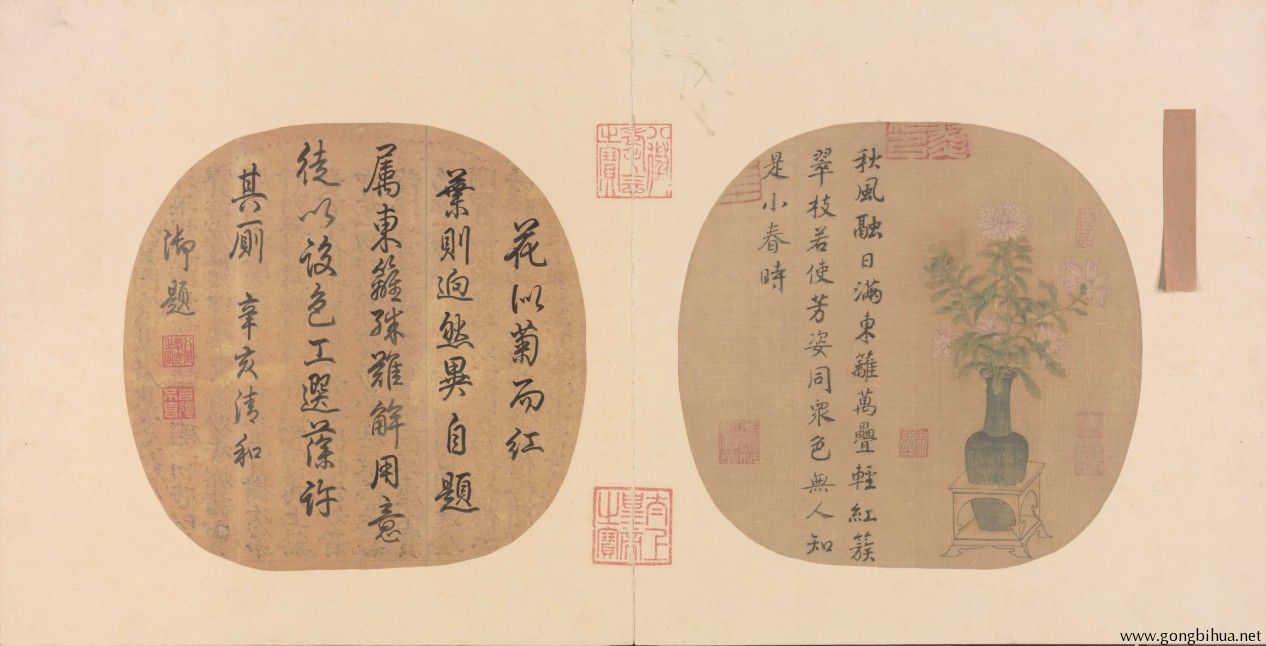 秋風融日滿東籬萬疊輕紅簇
翠枝若使芳姿同衆色無人知
是小春時
花似菊而紅
葉則迥然異自題
属東籬殊難解用意
徒以設色工選藻許
其厠 辛亥清和
御題
八徵耄念之寳
太上皇帝之寳
www.gongbihua.net